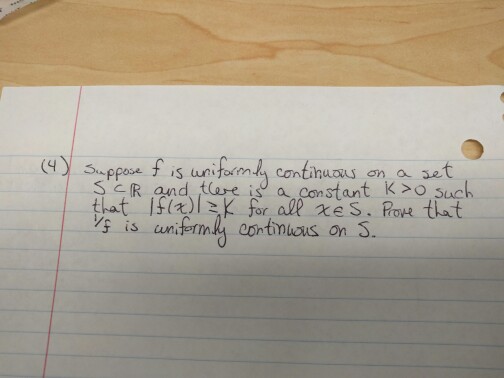 (4) Suppose f is uniformly continuous on a set
S ⊂ ℝ and there is a constant K > 0 such
that |f(x)| ≥ K for all x ∈ S. Prove that
1/f is uniformly continuous on S.